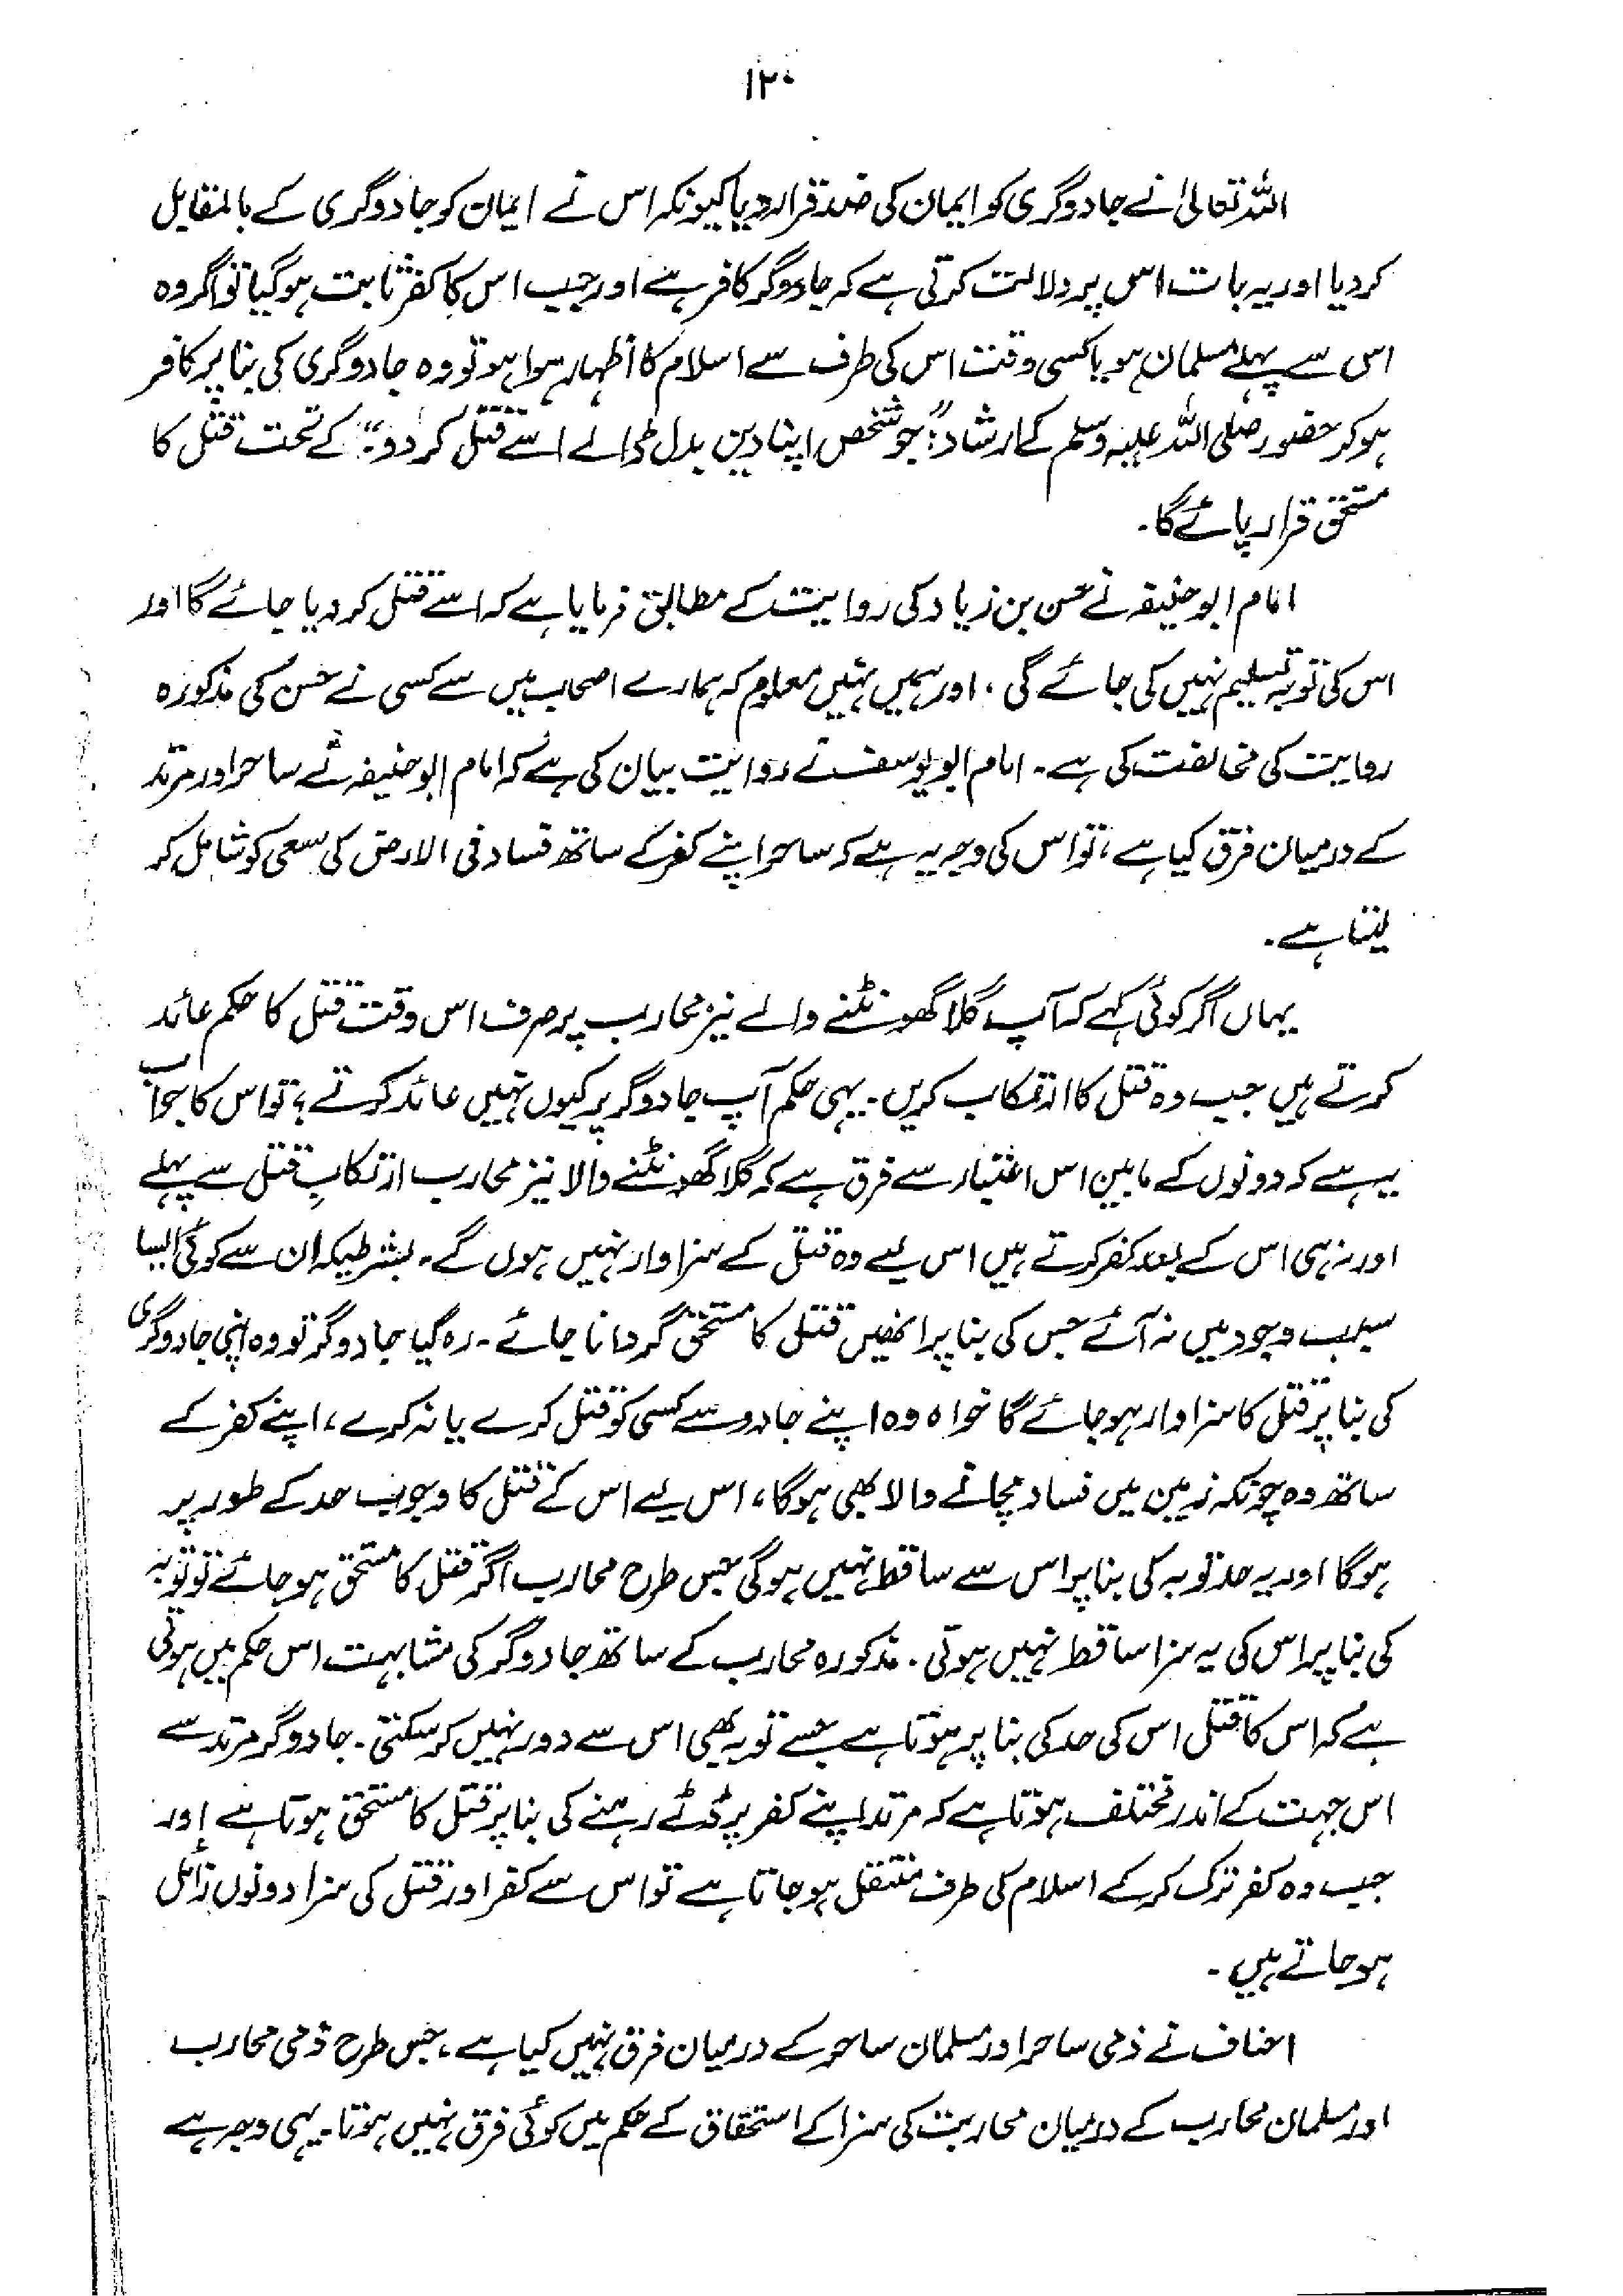 ۱۲۰
اللہ تعالیٰ نے جادوگری کو ایمان کی ضد قرار دیا کیونکہ اس نے ایمان کو جادوگری کے بالمقابل
کر دیا اور یہ بات اس پر دلالت کرتی ہے کہ جادوگر کافر ہے اور جب اس کا کفر ثابت ہوگیا تو اگر وہ
اس سے پہلے مسلمان ہو یا کسی وقت اس کی طرف سے اسلام کا اظہار ہوا ہو تو وہ جادوگری کی بنا پر کافر
ہو کر حضور صلی اللہ علیہ وسلم کے ارشاد: "جو شخص اپنا دین بدل ڈالے اسے قتل کر دو"۔ کے تحت قتل کا
مستحق قرار پائے گا۔
امام ابوحنیفہ نے حسن بن زیاد کی روایت کے مطابق فرمایا ہے کہ اسے قتل کر دیا جائے گا اور
اس کی توبہ تسلیم نہیں کی جائے گی، اور ہمیں نہیں معلوم کہ ہمارے اصحاب میں سے کسی نے حسن کی مذکورہ
روایت کی مخالفت کی ہے۔ امام ابویوسف نے روایت بیان کی ہے کہ امام ابوحنیفہ نے ساحر اور مرتد
کے درمیان فرق کیا ہے، تو اس کی وجہ یہ ہے کہ ساحر اپنے کفر کے ساتھ فساد فی الارض کی سعی کو شامل کر
لیتا ہے۔
یہاں اگر کوئی کہے کہ آپ گلا گھونٹنے والے نیز محارب پر صرف اس وقت قتل کا حکم عائد
کرتے ہیں جب وہ قتل کا ارتکاب کریں۔ یہی حکم آپ جادوگر پر کیوں نہیں عائد کرتے؟ تو اس کا جواب
یہ ہے کہ دونوں کے مابین اس اعتبار سے فرق ہے کہ گلا گھونٹنے والا نیز محارب ارتکابِ قتل سے پہلے
اور نہ ہی اس کے بعد کفر کرتے ہیں اس لیے وہ قتل کے سزاوار نہیں ہوں گے۔ بشرطیکہ ان سے کوئی ایسا
سبب وجود میں نہ آئے جس کی بنا پر انھیں قتل کا مستحق گردانا جائے۔ رہ گیا جادوگر تو وہ اپنی جادوگری
کی بنا پر قتل کا سزاوار ہو جائے گا خواہ وہ اپنے جادو سے کسی کو قتل کرے یا نہ کرے، اپنے کفر کے
ساتھ وہ چونکہ زمین میں فساد مچانے والا بھی ہوگا، اس لیے اس کے قتل کا وجوب حد کے طور پر
ہوگا اور یہ حد توبہ کی بنا پر اس سے ساقط نہیں ہوگی جس طرح محارب اگر قتل کا مستحق ہو جائے تو توبہ
کی بنا پر اس کی یہ سزا ساقط نہیں ہوتی۔ مذکورہ محارب کے ساتھ جادوگر کی مشابہت اس حکم میں ہوتی
ہے کہ اس کا قتل اس کی حد کی بنا پر ہوتا ہے جسے توبہ بھی اس سے دور نہیں کر سکتی۔ جادوگر مرتد سے
اس جہت کے اندر مختلف ہوتا ہے کہ مرتد اپنے کفر پر ڈٹے رہنے کی بنا پر قتل کا مستحق ہوتا ہے اور
جب وہ کفر ترک کر کے اسلام کی طرف منتقل ہو جاتا ہے تو اس سے کفر اور قتل کی سزا دونوں زائل
ہو جاتے ہیں۔
احناف نے ذمی ساحر اور مسلمان ساحر کے درمیان فرق نہیں کیا ہے، جس طرح ذمی محارب
اور مسلمان محارب کے درمیان محاربت کی سزا کے استحقاق کے حکم میں کوئی فرق نہیں ہوتا۔ یہی وجہ ہے